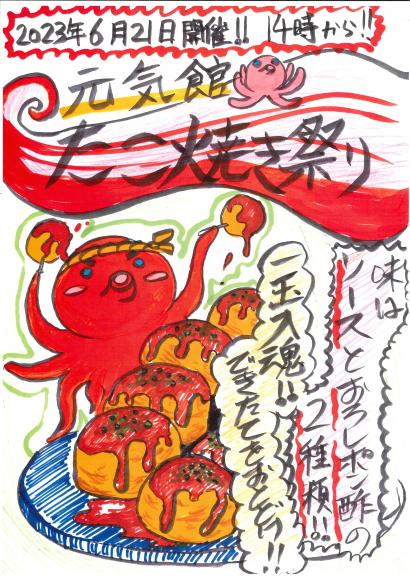 2023年6月21日開催!! 14時から!!
元気館
たこ焼き祭り
味は
ソースとおろしポン酢の
2種類!!
一玉入魂!!
できたてをおとどけ!!